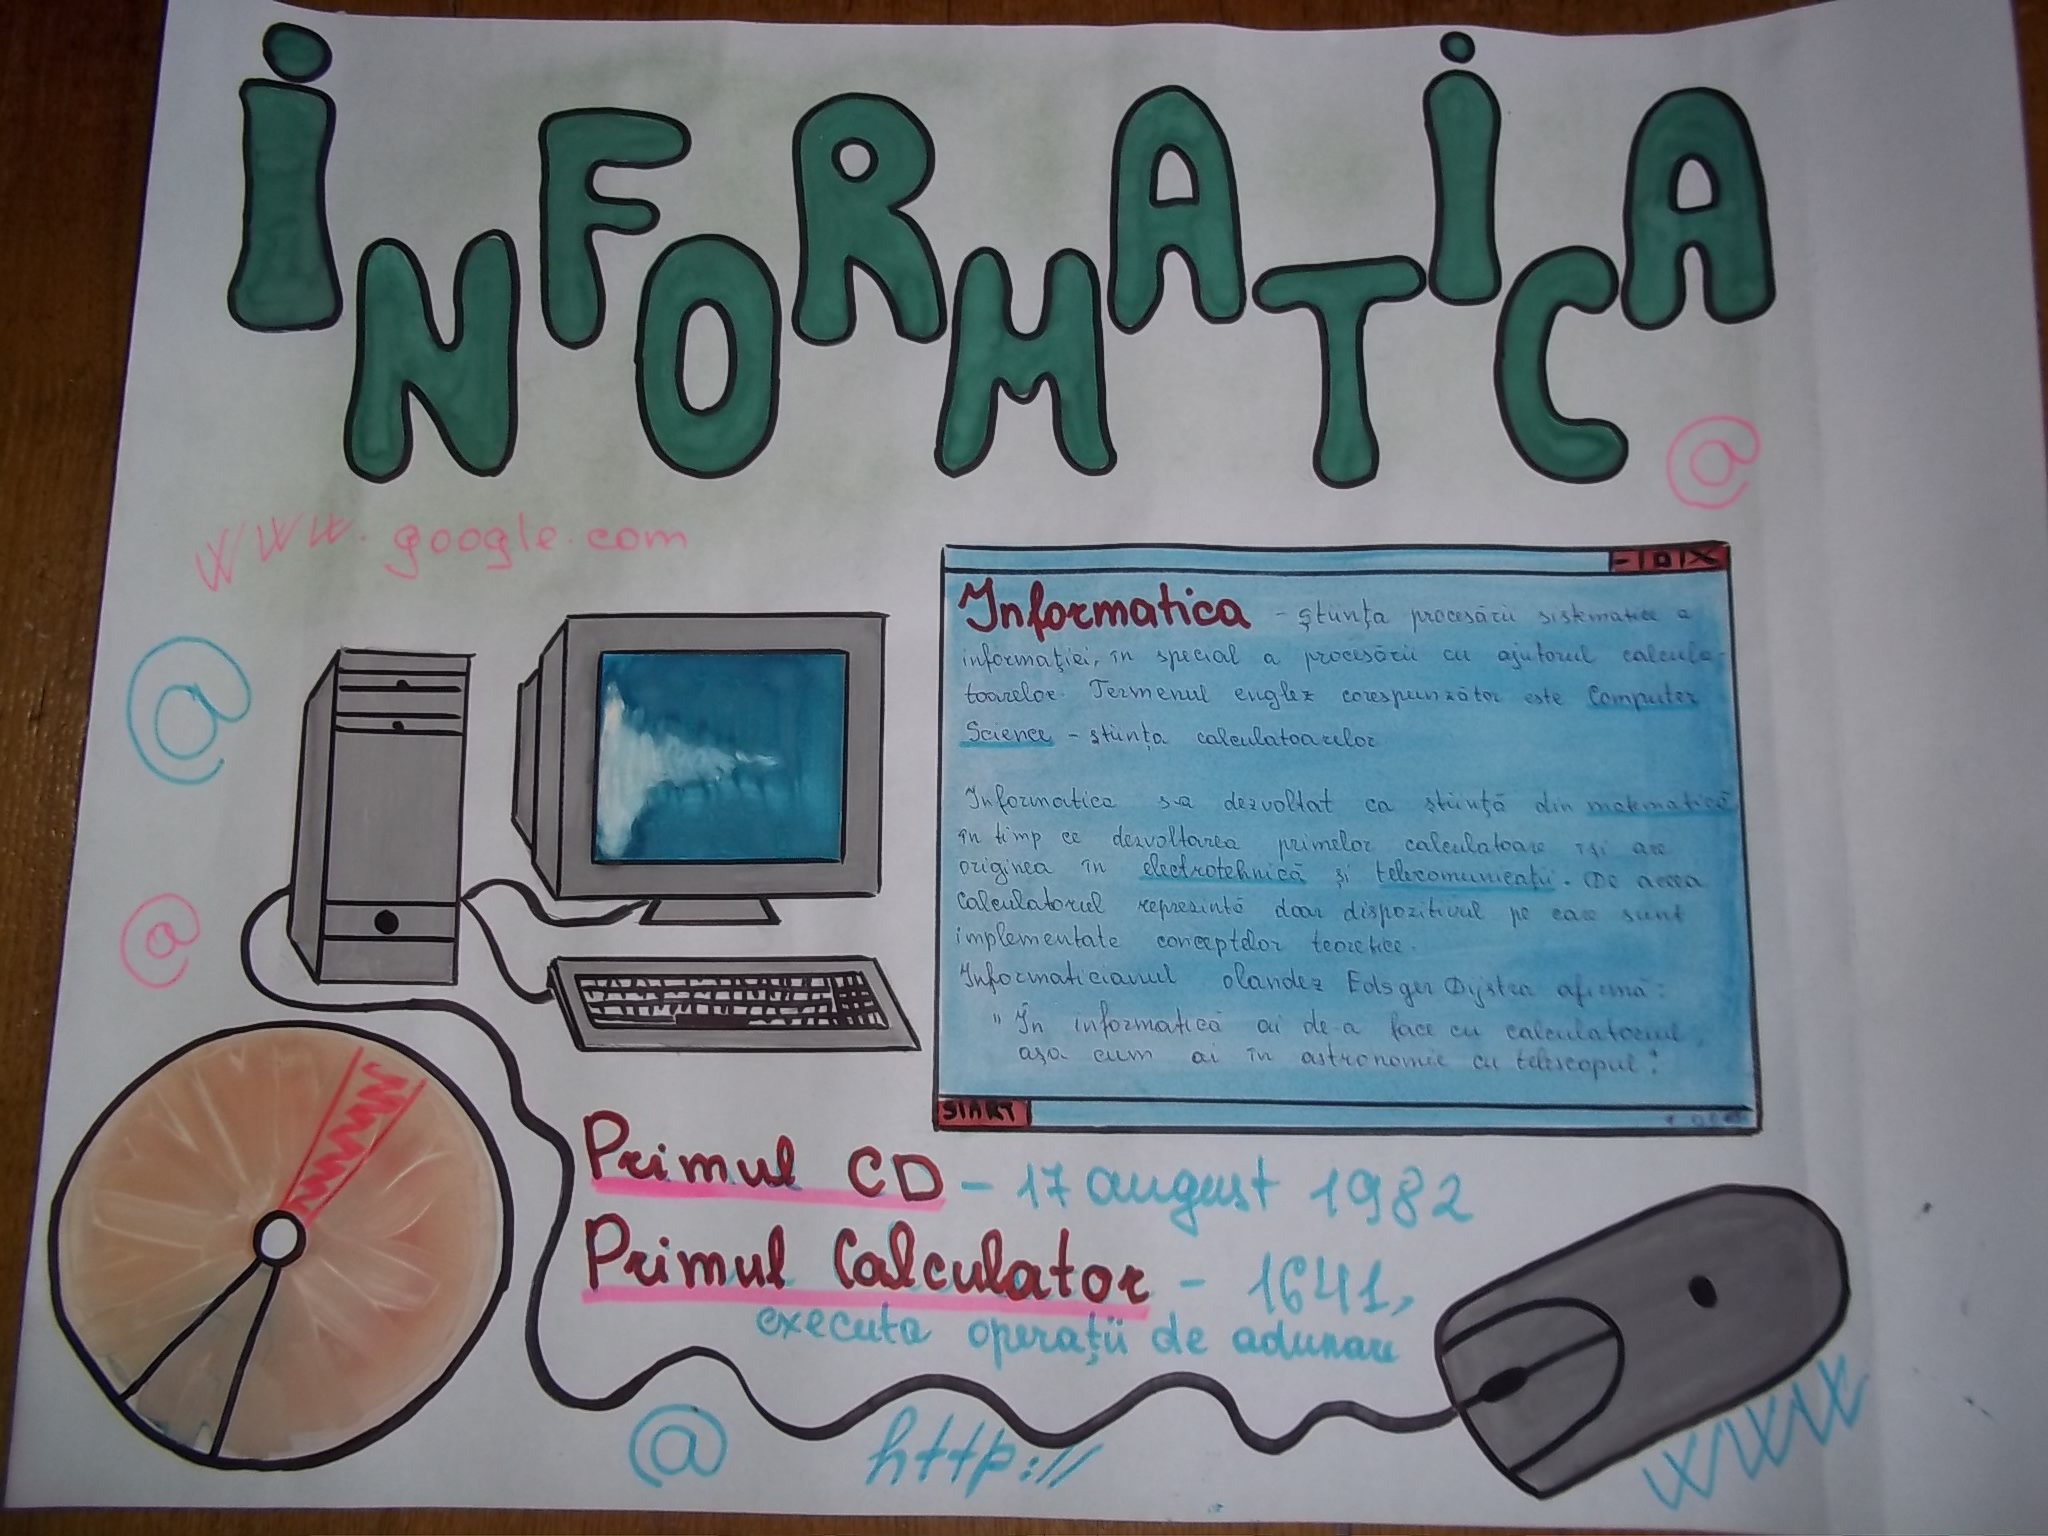 INFORMATICA
@
www.google.com
@
@
- □ X
Informatica - știința procesării sistematice a
informației, în special a procesării cu ajutorul calcula-
toarelor. Termenul englez corespunzător este Computer
Science - știința calculatoarelor
Informatica s-a dezvoltat ca știință din matematică
în timp ce dezvoltarea primelor calculatoare își are
originea în electrotehnică și telecomunicații. De aceea
Calculatorul reprezintă doar dispozitivul pe care sunt
implementate conceptelor teoretice.
Informaticianul olandez Edsger Dijstra afirmă:
"În informatică ai de-a face cu calculatorul,
așa cum ai în astronomie cu telescopul."
START
Primul CD - 17 august 1982
Primul Calculator - 1641,
executa operații de adunare
@
http://
WWW